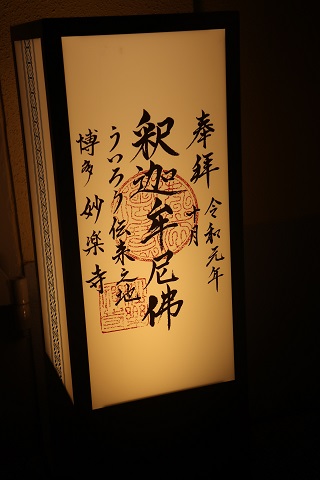 奉拝
令和元年
十月
釈迦牟尼佛
ういろう伝来之地
博多 妙楽寺